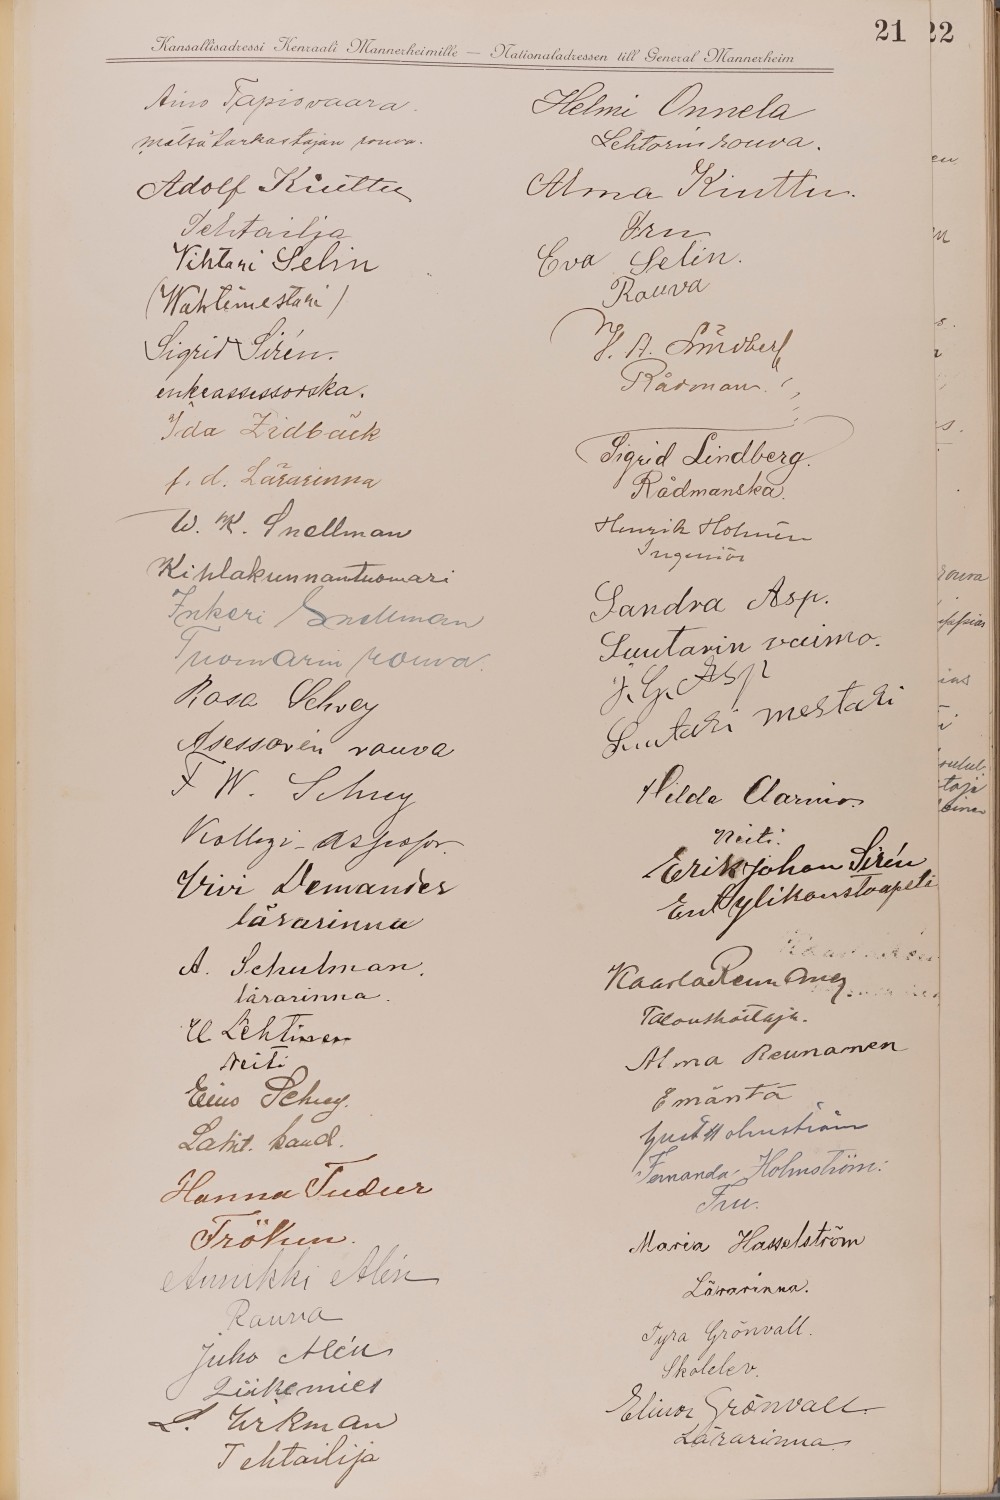 21
22
Kansallisadressi Kenraali Mannerheimille — Nationaladressen till General Mannerheim
Aino Tapiovaara.
metsätarkastajan rouva.
Adolf Kiuttu
Tehtailija
Vihtari Selin
(Wahtimestari)
Sigrid Sirén.
enkeassessorska.
Ida Zidbäck
f. d. Lärarinna
W. K. Snellman
Kihlakunnantuomari
Inkeri Snellman
Tuomarin rouva.
Rosa Schrey
Asessorin rouva
F W. Schrey
Kollegi-assessor.
Vivi Demander
lärarinna
A. Schulman.
lärarinna.
Lehtinen
Neiti
Eino Schrey.
kand.
Hanna Tudeer
Fröken.
Annikki Alén
Rouva
Juho Alén
Liikemies
L. Wikman
Tehtailija
Helmi Onnela
Lehtorin rouva.
Alma Kiuttu.
Fru
Eva Selin.
Rouva
A. Lindberg
Rådman.
Sigrid Lindberg.
Rådmanska.
Henrik Holmén
Ingeniör
Sandra Asp.
Suutarin vaimo.
J. G. Asp
Suutari mestari
Hilda Clarnio.
Neiti.
Erik Johan Sirén
Ent ylikonstaapeli
Kaarlo Reunanen
Taloushoitaja.
Alma Reunanen
Emäntä
Holmström
Fernanda Holmström:
Fru.
Maria Hasselström
Lärarinna.
Tyra Grönvall.
Skolelev.
Elinor Grönvall.
Lärarinna
rouva